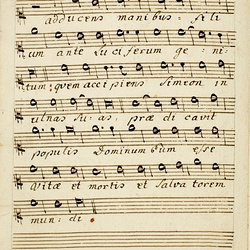 adducens manibus fili
um ante Luciferum ge ni
tum quem accipiens Simeon in
ulnas su as, præ di cavit
populis Dominum Eum esse
Vitæ et mortis et Salva torem
mun di